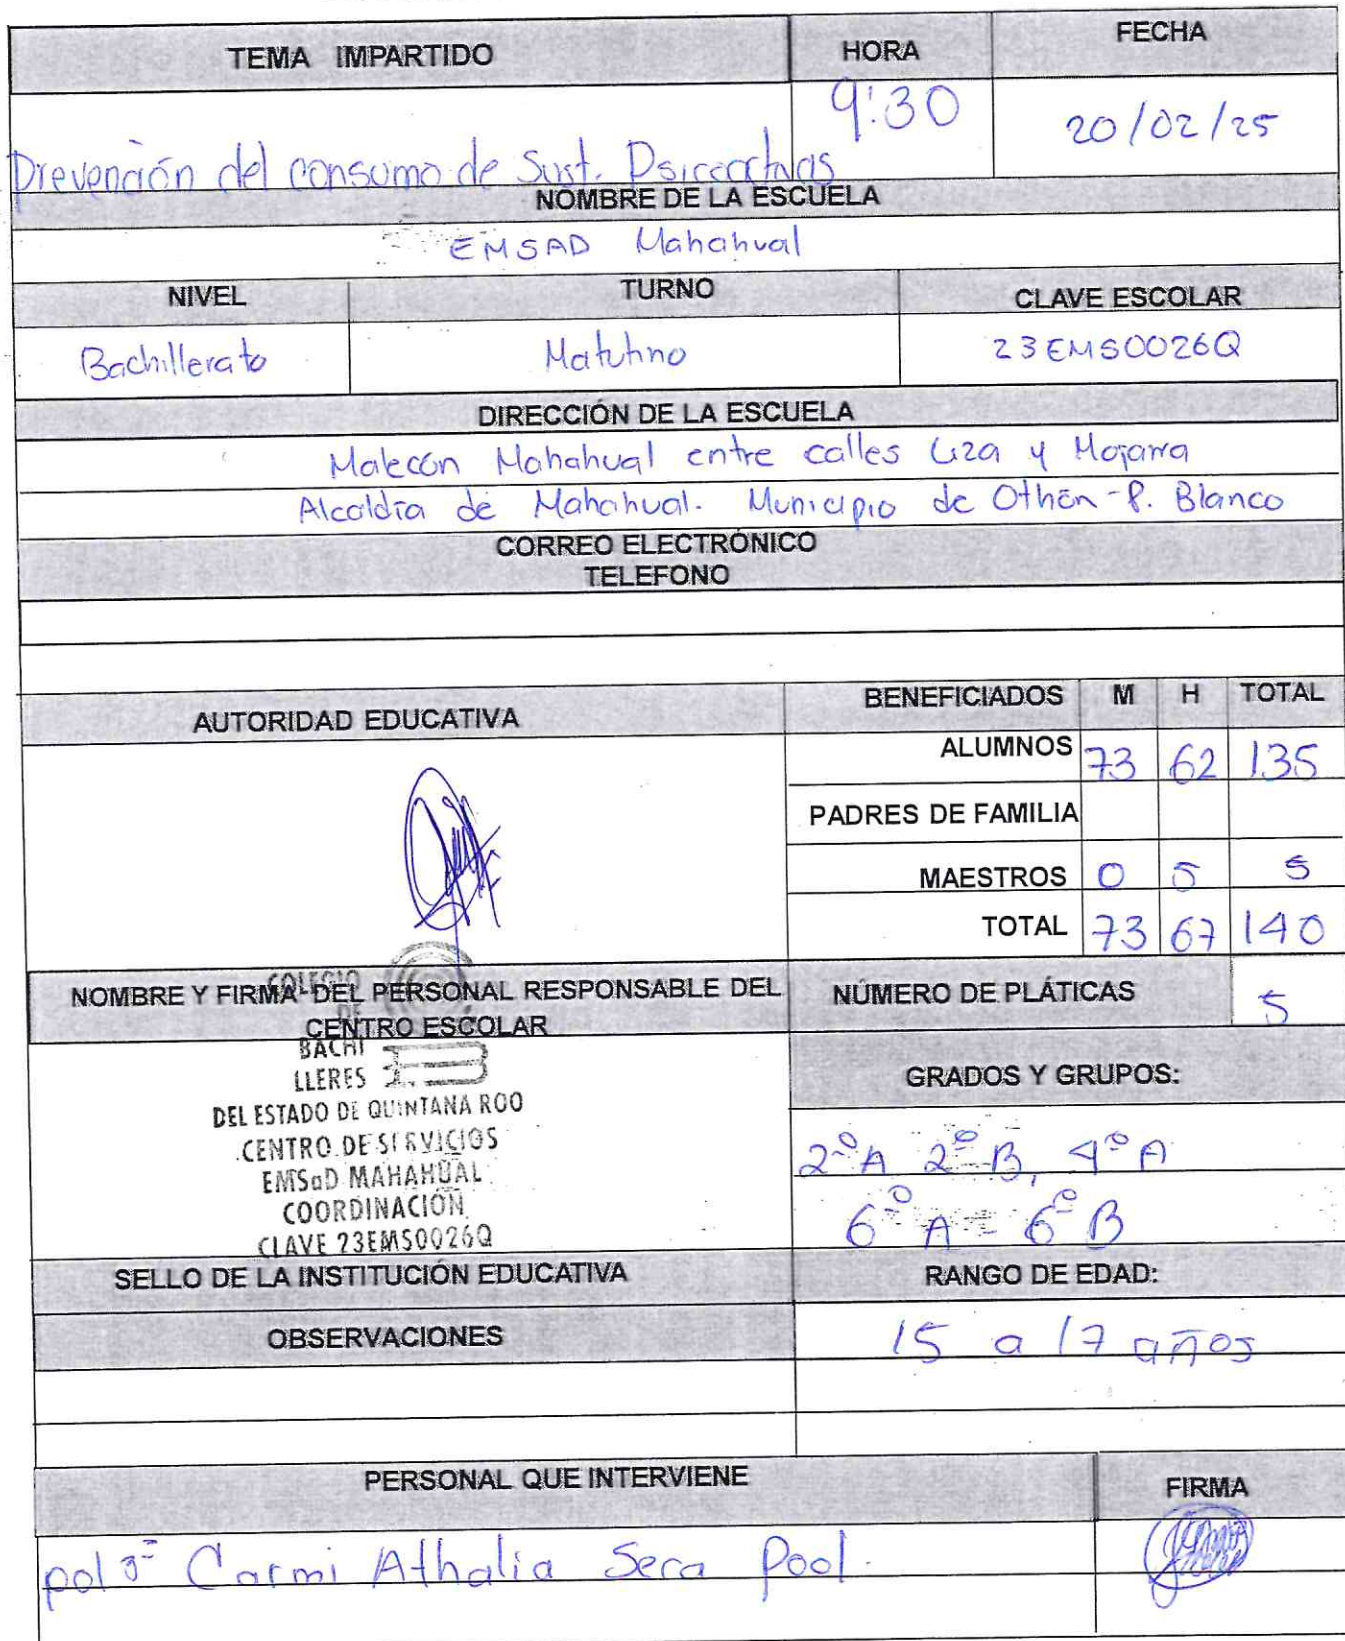 TEMA IMPARTIDO HORA FECHA
Prevención del consumo de Sust. Psicoactivas 9:30 20/02/25
NOMBRE DE LA ESCUELA
EMSAD Mahahual
NIVEL TURNO CLAVE ESCOLAR
Bachillerato Matutino 23EMS0026Q
DIRECCIÓN DE LA ESCUELA
Malecón Mahahual entre calles Liza y Mojarra
Alcaldía de Mahahual. Municipio de Othón P. Blanco
CORREO ELECTRÓNICO
TELEFONO
AUTORIDAD EDUCATIVA BENEFICIADOS M H TOTAL
ALUMNOS 73 62 135
PADRES DE FAMILIA
MAESTROS 0 5 5
TOTAL 73 67 140
NOMBRE Y FIRMA DEL PERSONAL RESPONSABLE DEL CENTRO ESCOLAR
NÚMERO DE PLÁTICAS 5
COLEGIO
DE
BACHI
LLERES
DEL ESTADO DE QUINTANA ROO
CENTRO DE SERVICIOS
EMSaD MAHAHUAL
COORDINACIÓN
CLAVE 23EMS0026Q
GRADOS Y GRUPOS:
2º A 2º B, 4º A
6º A - 6º B
SELLO DE LA INSTITUCIÓN EDUCATIVA RANGO DE EDAD:
OBSERVACIONES 15 a 17 años
PERSONAL QUE INTERVIENE FIRMA
pol 3º Carmi Athalia Sera Pool.